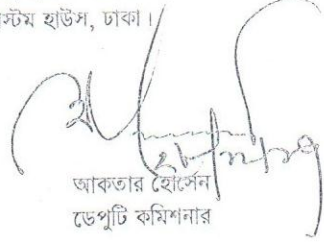 স্টম হাউস, ঢাকা।
আকতার হোসেন
ডেপুটি কমিশনার